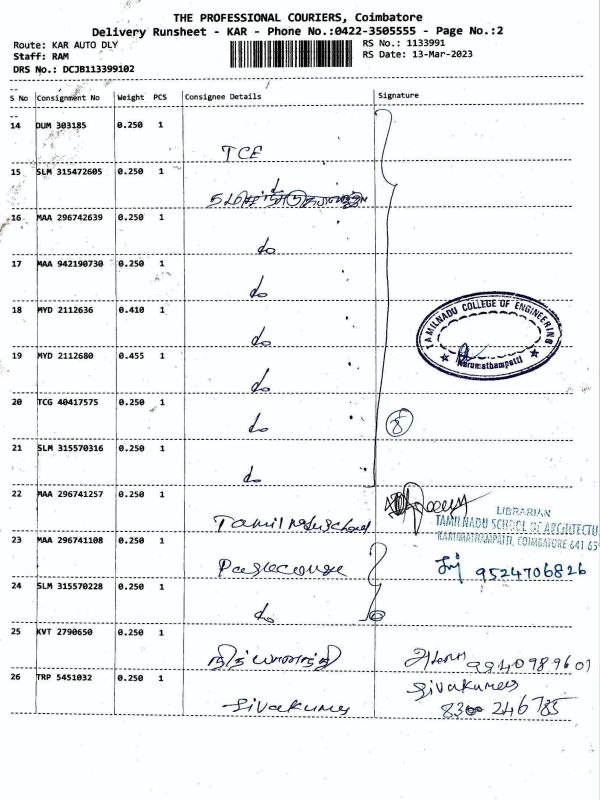 THE PROFESSIONAL COURIERS, Coimbatore
Delivery Runsheet - KAR - Phone No.:0422-3505555 - Page No.:2
Route: KAR AUTO DLY RS No.: 1133991
Staff: RAM RS Date: 13-Mar-2023
DRS No.: DCJB113399102
S No Consignment No Weight PCS Consignee Details Signature
14 DUM 303185 0.250 1
TCE
15 SLM 315472605 0.250 1
do
16 MAA 296742639 0.250 1
do
17 MAA 942190730 0.250 1
do
18 MYD 2112636 0.410 1
do
TAMILNADU COLLEGE OF ENGINEERING
Karumathampatti
19 MYD 2112680 0.455 1
do
20 TCG 40417575 0.250 1
do 8
21 SLM 315570316 0.250 1
do
22 MAA 296741257 0.250 1
Tamil nadu school
LIBRARIAN
TAMILNADU SCHOOL OF ARCHITECTU
KARUMATHAMPATTI, COIMBATORE 641 65
23 MAA 296741108 0.250 1
9524706826
24 SLM 315570228 0.250 1
do
25 KVT 2790650 0.250 1
நித்யானந்தி 9940989601
26 TRP 5451032 0.250 1
Sivakumar
Sivakumar
8300 246785